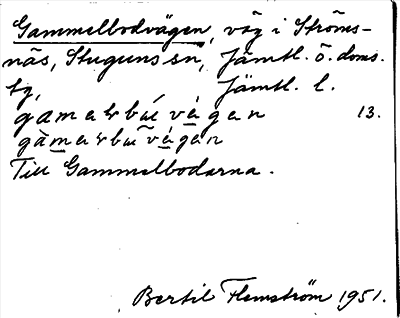 Gammelbodvägen, väg i Ströms-
näs, Stuguns sn, Jämtl. ö. doms.
tg, Jämtl. l.
13.
Till Gammelbodarna.
Bertil Flemström 1951.